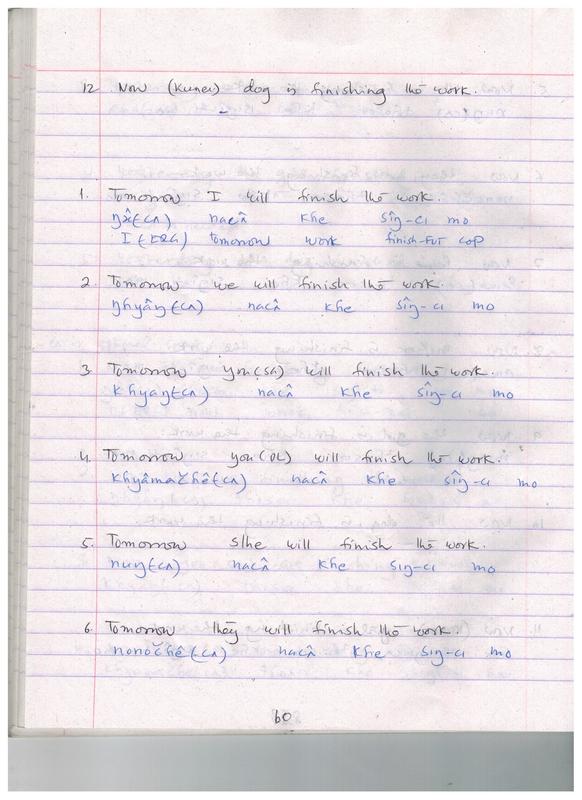 12 Now (Kunei) dog is finishing the work.
1. Tomorrow I will finish the work.
ŋâ(cʌ) nacʌ̂ khe sîŋ-cı mo
I (ERG) tomorrow work finish-FUT COP
2. Tomorrow we will finish the work.
ŋhyâŋ(cʌ) nacʌ̂ khe sîŋ-cı mo
3. Tomorrow you(SG) will finish the work.
khyaŋ(cʌ) nacʌ̂ khe sîŋ-cı mo
4. Tomorrow you(PL) will finish the work.
khyâmačhê(cʌ) nacʌ̂ khe sîŋ-cı mo
5. Tomorrow s/he will finish the work.
nuŋ(cʌ) nacʌ̂ khe sıŋ-cı mo
6. Tomorrow they will finish the work.
nonočhê(cʌ) nacʌ̂ khe sıŋ-cı mo
60